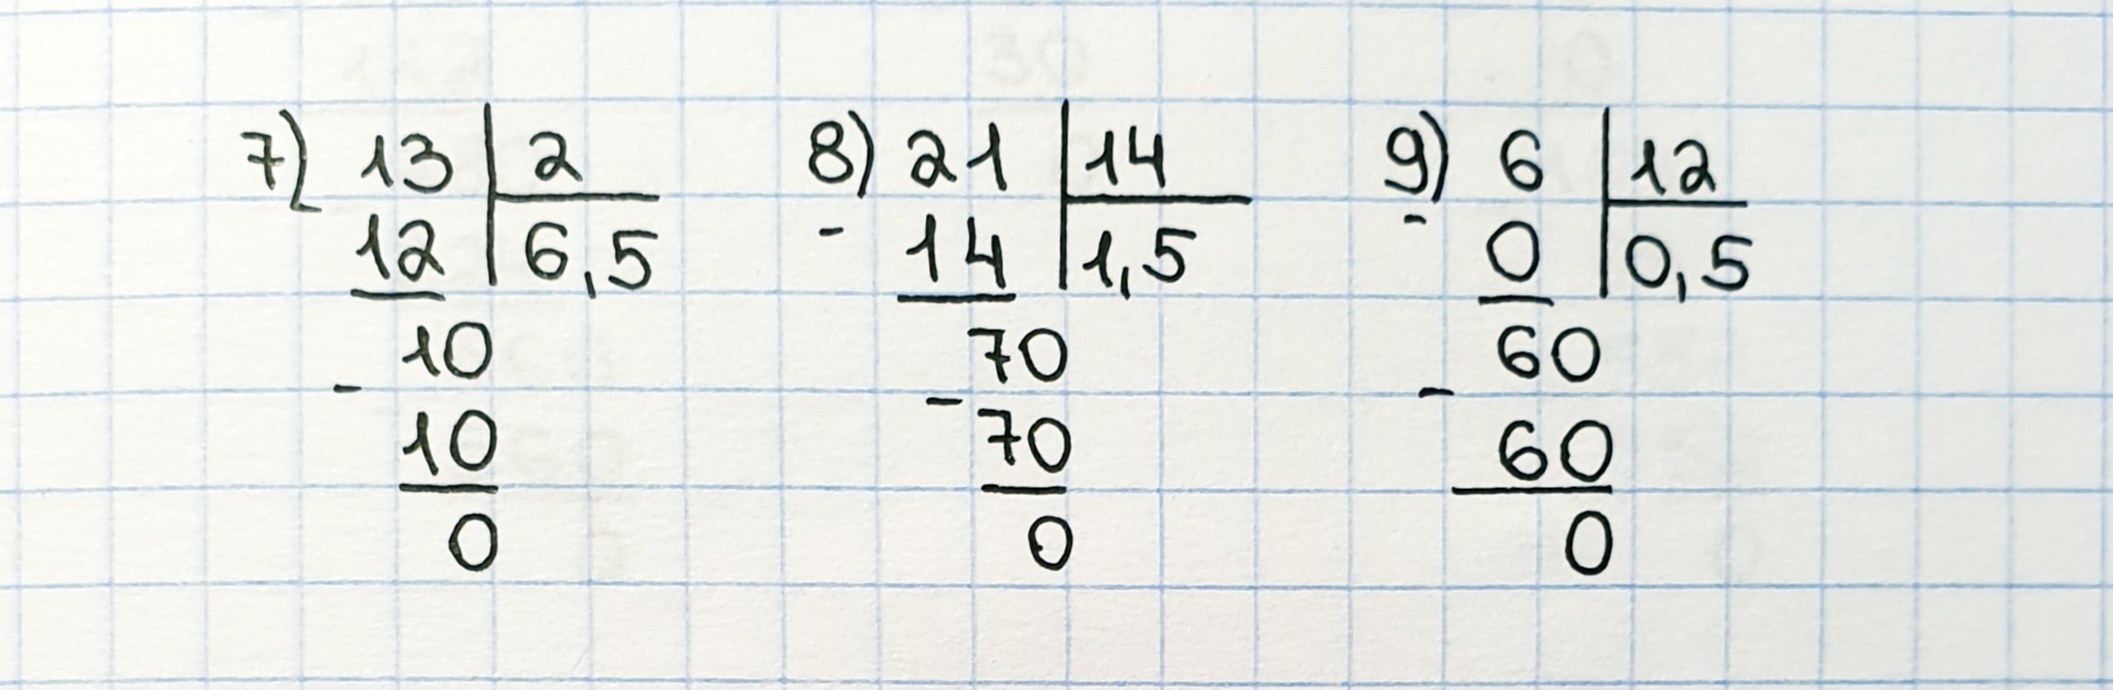 7) 13 2
- 12 6,5
10
- 10
0
8) 21 14
- 14 1,5
70
- 70
0
9) 6 12
- 0 0,5
60
- 60
0